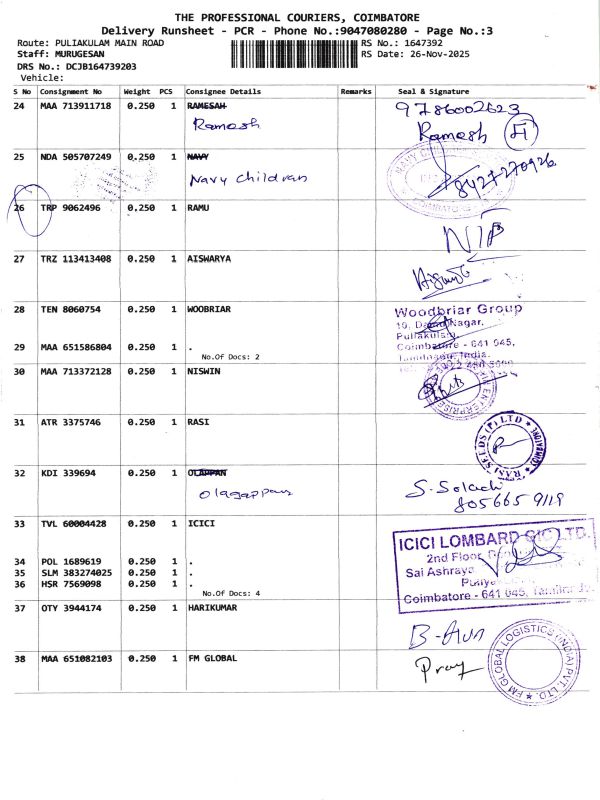 THE PROFESSIONAL COURIERS, COIMBATORE
Delivery Runsheet - PCR - Phone No.:9047080280 - Page No.:3
Route: PULIAKULAM MAIN ROAD RS No.: 1647392
Staff: MURUGESAN RS Date: 26-Nov-2025
DRS No.: DCJB164739203
Vehicle:
S No Consignment No Weight PCS Consignee Details Remarks Seal & Signature
24 MAA 713911718 0.250 1 RAMESAH 9786002623
Ramesh Ramesh
25 NDA 505707249 0.250 1 NAVY
Navy Children 8427270926
26 TRP 9062496 0.250 1 RAMU
27 TRZ 113413408 0.250 1 AISWARYA
28 TEN 8060754 0.250 1 WOOBRIAR Woodbriar Group
Nagar,
Puliakulam,
29 MAA 651586804 0.250 1 . Coimbatore - 641 045,
No.Of Docs: 2 Tamilnadu, India.
30 MAA 713372128 0.250 1 NISWIN
31 ATR 3375746 0.250 1 RASI RASI SEEDS (P) LTD COIMBATORE
32 KDI 339694 0.250 1 OLAPPAN
Olagappan 805665 9119
33 TVL 60004428 0.250 1 ICICI ICICI LOMBARD GIC LTD.
2nd Floor,
34 POL 1689619 0.250 1 . Sai Ashraya
35 SLM 383274025 0.250 1 .
36 HSR 7569098 0.250 1 . Coimbatore - 641 045, Tamilnadu
No.Of Docs: 4
37 OTY 3944174 0.250 1 HARIKUMAR
B-Arun
38 MAA 651082103 0.250 1 FM GLOBAL FM GLOBAL LOGISTICS (INDIA) PVT. LTD.